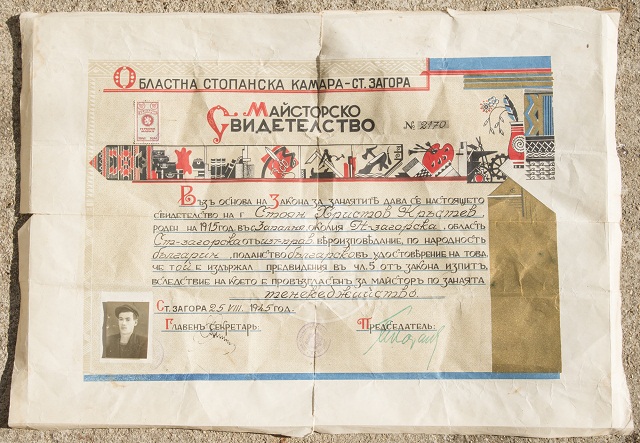 Областна стопанска камара-Ст. Загора
Майсторско
Свидетелство
№ 2170
Възъ основа на Закона за занаятитѣ дава се настоящето
свидетелство на г. Стоян Христов Кръстев,
роден на 1915 год. въ с. Запалня околия Н-Загорска, област
Ст-Загорска отъ изт-прав. вѣроизповѣдание, по народность
българин, поданство българско въ удостоверение на това,
че той е издържал предвидения въ чл. 5 отъ закона изпитъ,
вследствие на което е провъзгласенъ за майсторъ по занаята
тенекеджийство.
Ст. Загора 25 VIII. 1945 год.
Главенъ секретарь:
Председатель: